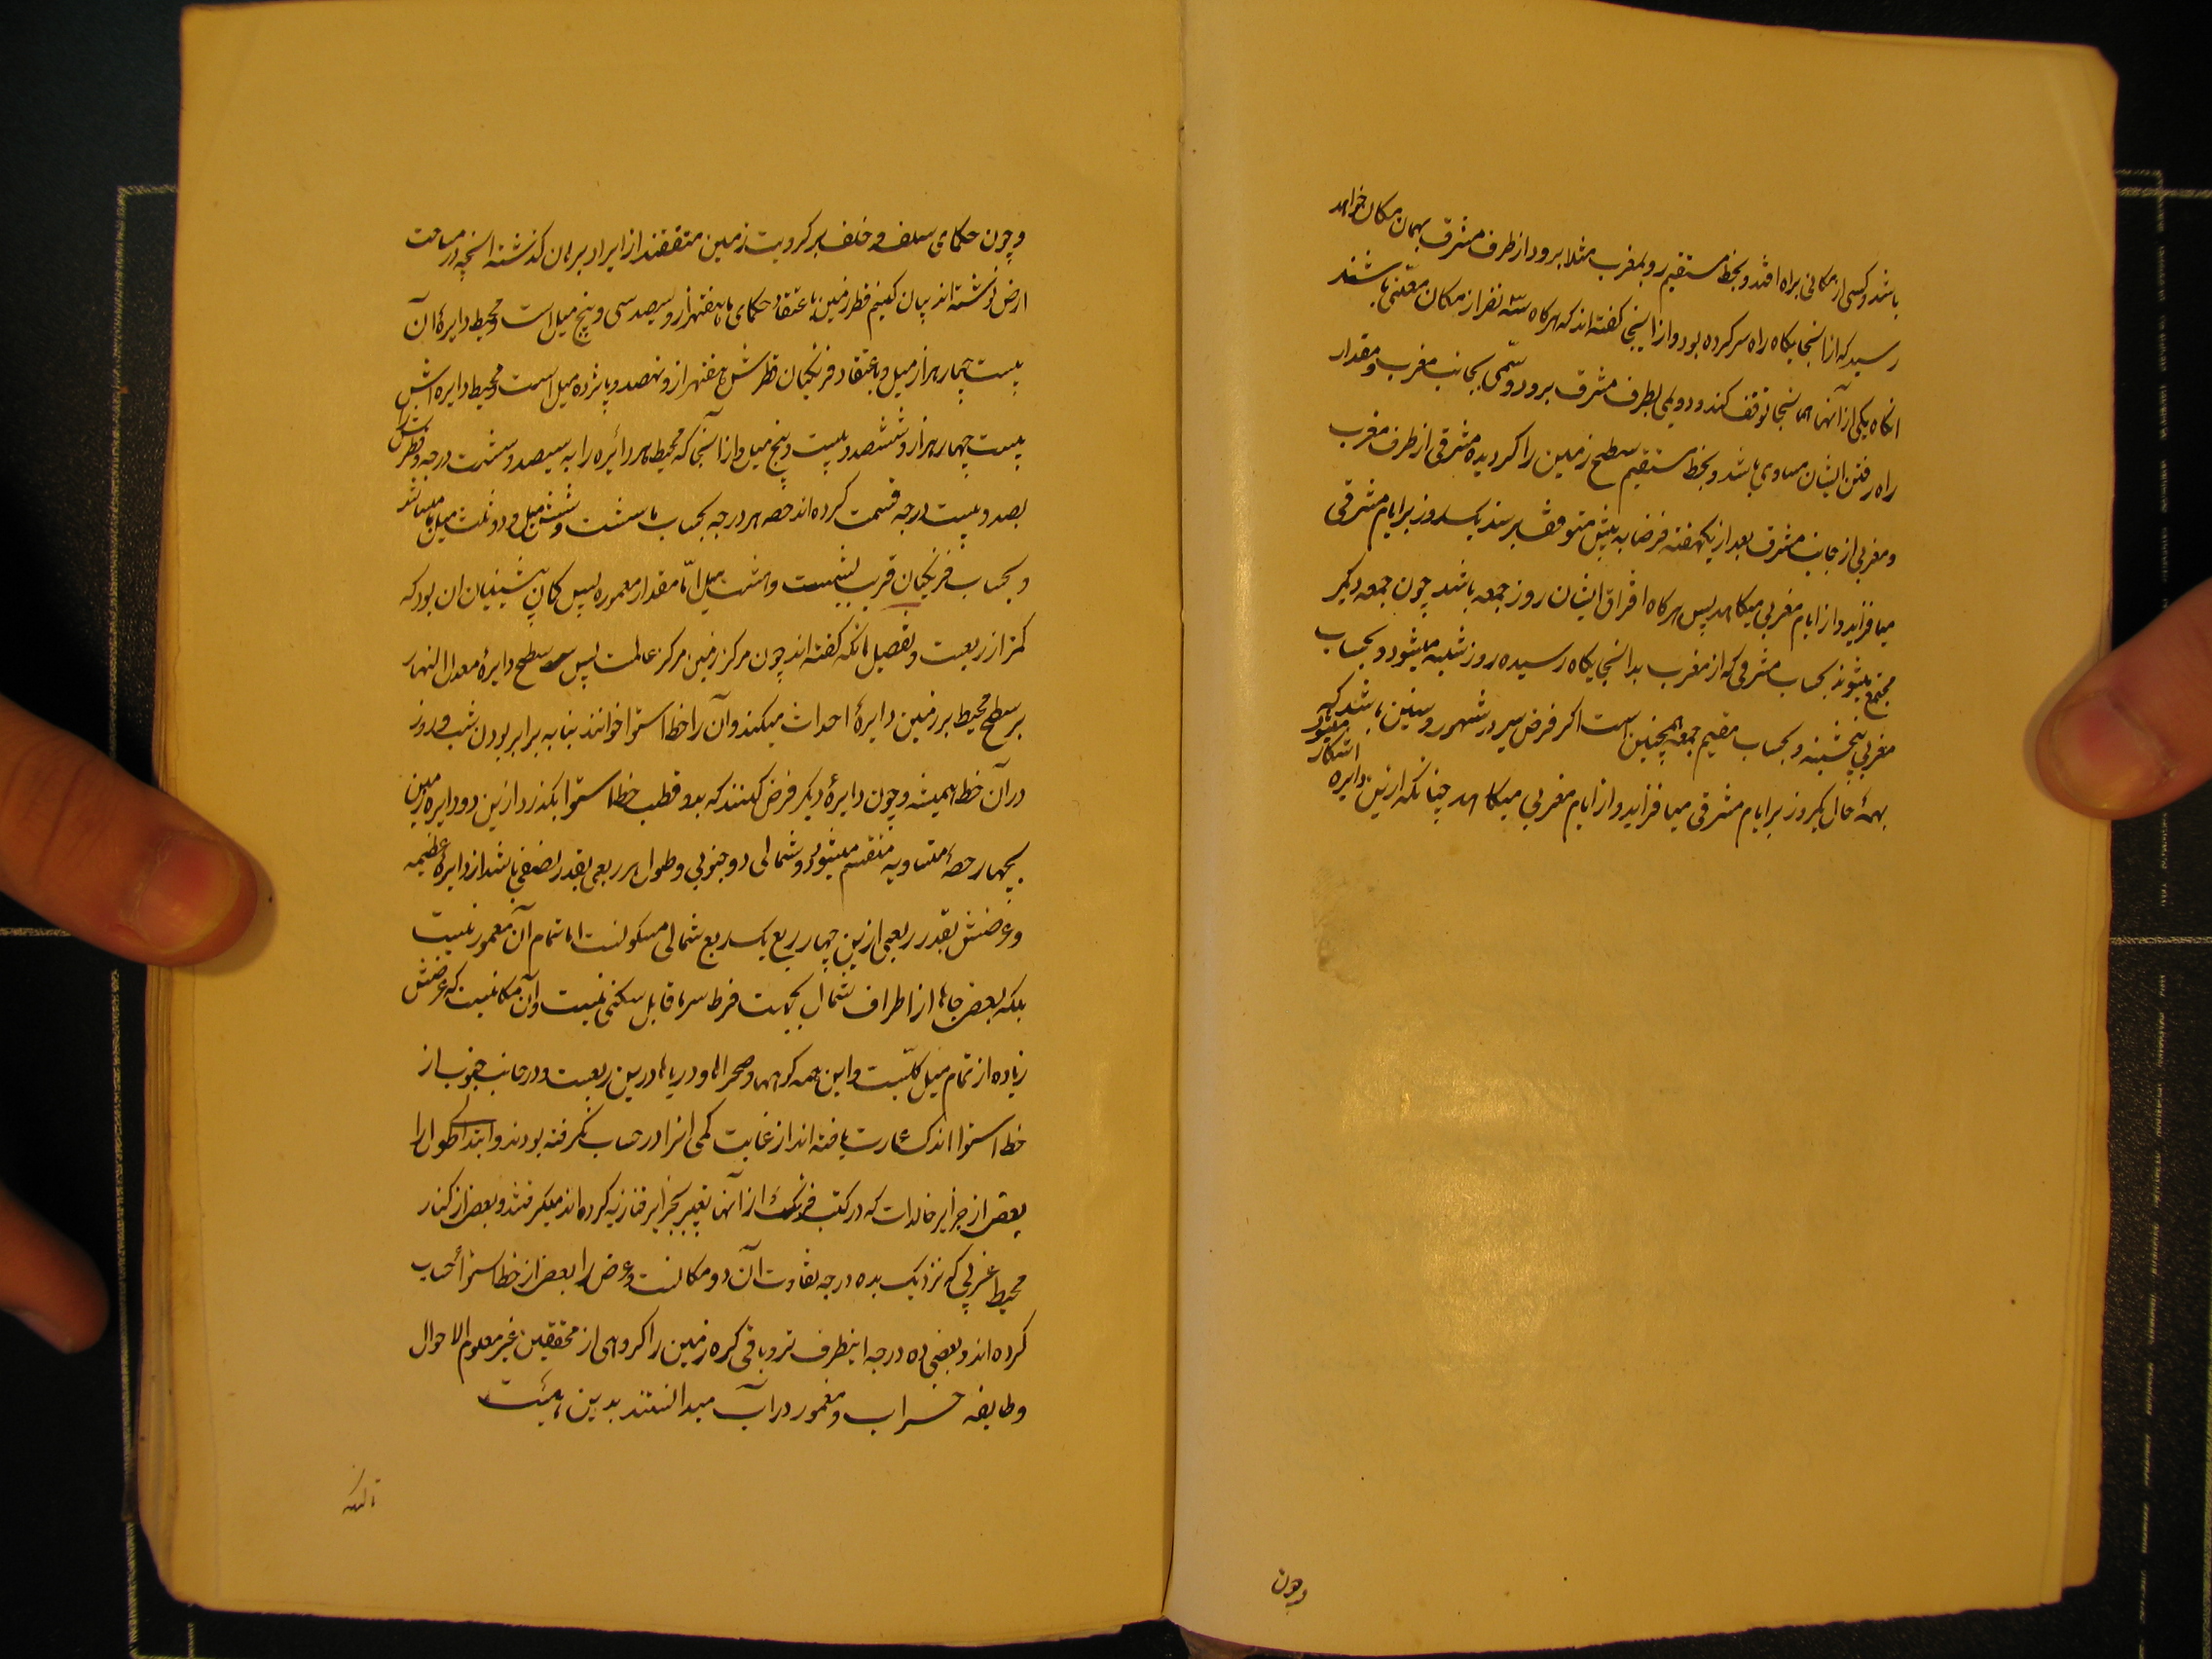 باشد و کسی از مکانی براه افتد و بخط مستقیم رو بمغرب مثلا برود از طرف مشرق بهمان مکان خواهد
رسید که از آنجایگاه راه سر کرده بود و از اینجا گفته‌اند که هر گاه سه نفر از مکان معینی باشند
انگاه یکی از آنها همانجا توقف کند و دویمی بطرف مشرق برود و سیّمی بجانب مغرب و مقدار
راه رفتن ایشان مساوی باشد و بخط مستقیم سطح زمین را گردیده مشرقی از طرف مغرب
و مغربی از جانب مشرق بعد از یکهفته فرضا به پیش متوقف برسند یکروز بر ایام مشرقی
میافزاید و از ایام مغربی میکاهد پس هر گاه افراق ایشان روز جمعه باشد چون جمعه دیگر
مجتمع میشوند بحساب مشرقی که از مغرب بدانجایگاه رسیده روز شنبه میشود و بحساب
مغربی پنجشنبه و بحساب مقیم جمعه همچنین است اگر فرض سیر در شهور و سنین باشد که
بهمهٔ حال یکروز بر ایام مشرقی میافزاید و از ایام مغربی میکاهد چنانکه ازین دایره آشکار میشود
وچون
و چون حکمای سلف و خلف بر کرویت زمین متفقند از ایراد برهان گذشته انچه در مساحت
ارض نوشته‌اند بیان کنیم قطر زمین باعتقاد حکمای ما هفتهزار و سیصد سی و پنج میل است و محیط دایرهٔ آن
بیست چهار هزار میل و باعتقاد فرنگیان قطرش هفتهزار و نهصد و پانزده میل است و محیط دایره‌اش
بیست چهار هزار و ششصد و بیست و پنج میل و از آنجا که محیط هر دائره را به سیصد و شصت درجه و قطرش را
بصد و بیست درجه قسمت کرده‌اند حصه هر درجه بحساب ما شصت و شش میل و دو ثلث میل
و بحساب فرنگیان قریب بشصت و هشت میل امّا مقدار معموره پس گمان پیشینیان ان بود که
کمتر از ربعست و تفصیل انکه گفته‌اند چون مرکز زمین مرکز عالمست پس سطح دایرهٔ معدل النهار
بر سطح محیط بر زمین دایرهٔ احداث میکند و آن را خط استوا خوانند بنا به برابر بودن شب و روز
در آن خط همیشه و چون دایرهٔ دیگر فرض کنند که بدو قطب خط استوا بگذرد ازین دو دایره زمین
بچهار حصهٔ متساویه منقسم میشود دو شمالی دو جنوبی و طول هر ربعی بقدر نصفی باشد از دایرهٔ عظیمه
و عرضش بقدر ربعی ازین چهار ربع یک ربع شمالی مسکونست اما تمام آن معمور نیست
بلکه بعض جاها از اطراف شمال بجهت فرط سرما قابل سکنی نیست و آن مکانیست که عرضش
زیاده از تمام میل کلّیست و این همه کوهها و صحراها و دریاها درین ربعست و در جانب جنوب از
خط استوا اندک عمارت یافته‌اند از غایت کمی انرا در حساب نگرفته بودند و ابتدای طول را
بعض از جزایر خالدات که در کتب فرنگ از آنها تعبیر بجزایر فنازیه کرده‌اند میگرفتند و بعض از کنار
محیط غربی که نزدیک بده درجه تفاوت آن دو مکانست و عرض را بعض از خط استوا حساب
کرده‌اند و بعضی ده درجه اینطرف تر و باقی کره زمین را گروهی از محققین غیر معلوم الاحوال
و طایفه خراب و مغمور در آب میدانستند بدین هیئت